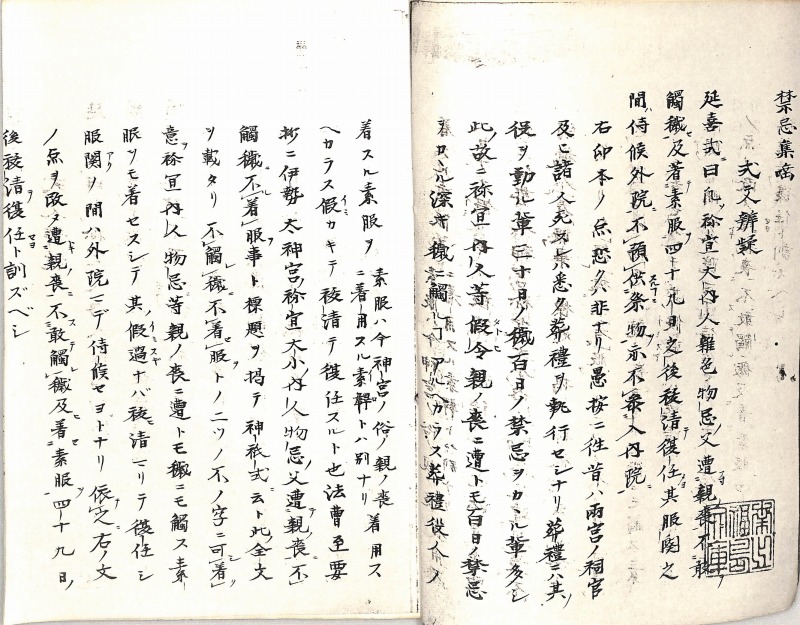 禁忌集唹
式文辨疑
延喜式曰凡祢宜大内人雜色物忌父遭親喪不敢
觸穢及著素服四十九日之後祓清復任其服闋之
間侍候外院不預供祭物亦不参入内院
右印本ノ点悉ク非ナリ愚按ニ往昔ハ兩宮ノ祠官
及ヒ諸人死スレハ悉ク葬禮ヲ執行セシナリ葬禮ニハ其
役ヲ勤ル輩三十日ノ穢百日ノ禁忌ヲカヽル輩多シ
此故ニ祢宜内人等假令親ノ喪ニ遭トモ百日ノ禁忌
カヽル深キ穢ニ觸ルヿアルヘカラス葬禮役人ノ
着スル素服ヲ
素服ハ今神宮ノ俗ノ親ノ喪着用ス
ニ着用スル素〓トハ別ナリ
ヘカラス假カキテ祓清テ復任スルト也法曹至要
抄ニ伊勢太神宮祢宜大小内人物忌父遭親喪不
觸穢不着服事ト標題ヲ揭テ神祇式云ト此全文
ヲ載タリ不觸穢不着服トノ二ツノ不ノ字ニ可着
意祢宜内人物忌等親ノ喪ニ遭トモ穢ニモ觸ス素
服ヲモ着セスシテ其假過ナバ祓清マリテ復任シ
服闋ヲ間ハ外院ニテ侍候セヨトナリ依之右ノ文
ノ点ヲ改タ遭親喪不敢觸穢及著素服四十九日ノ
後祓清復任ト訓ズベシ